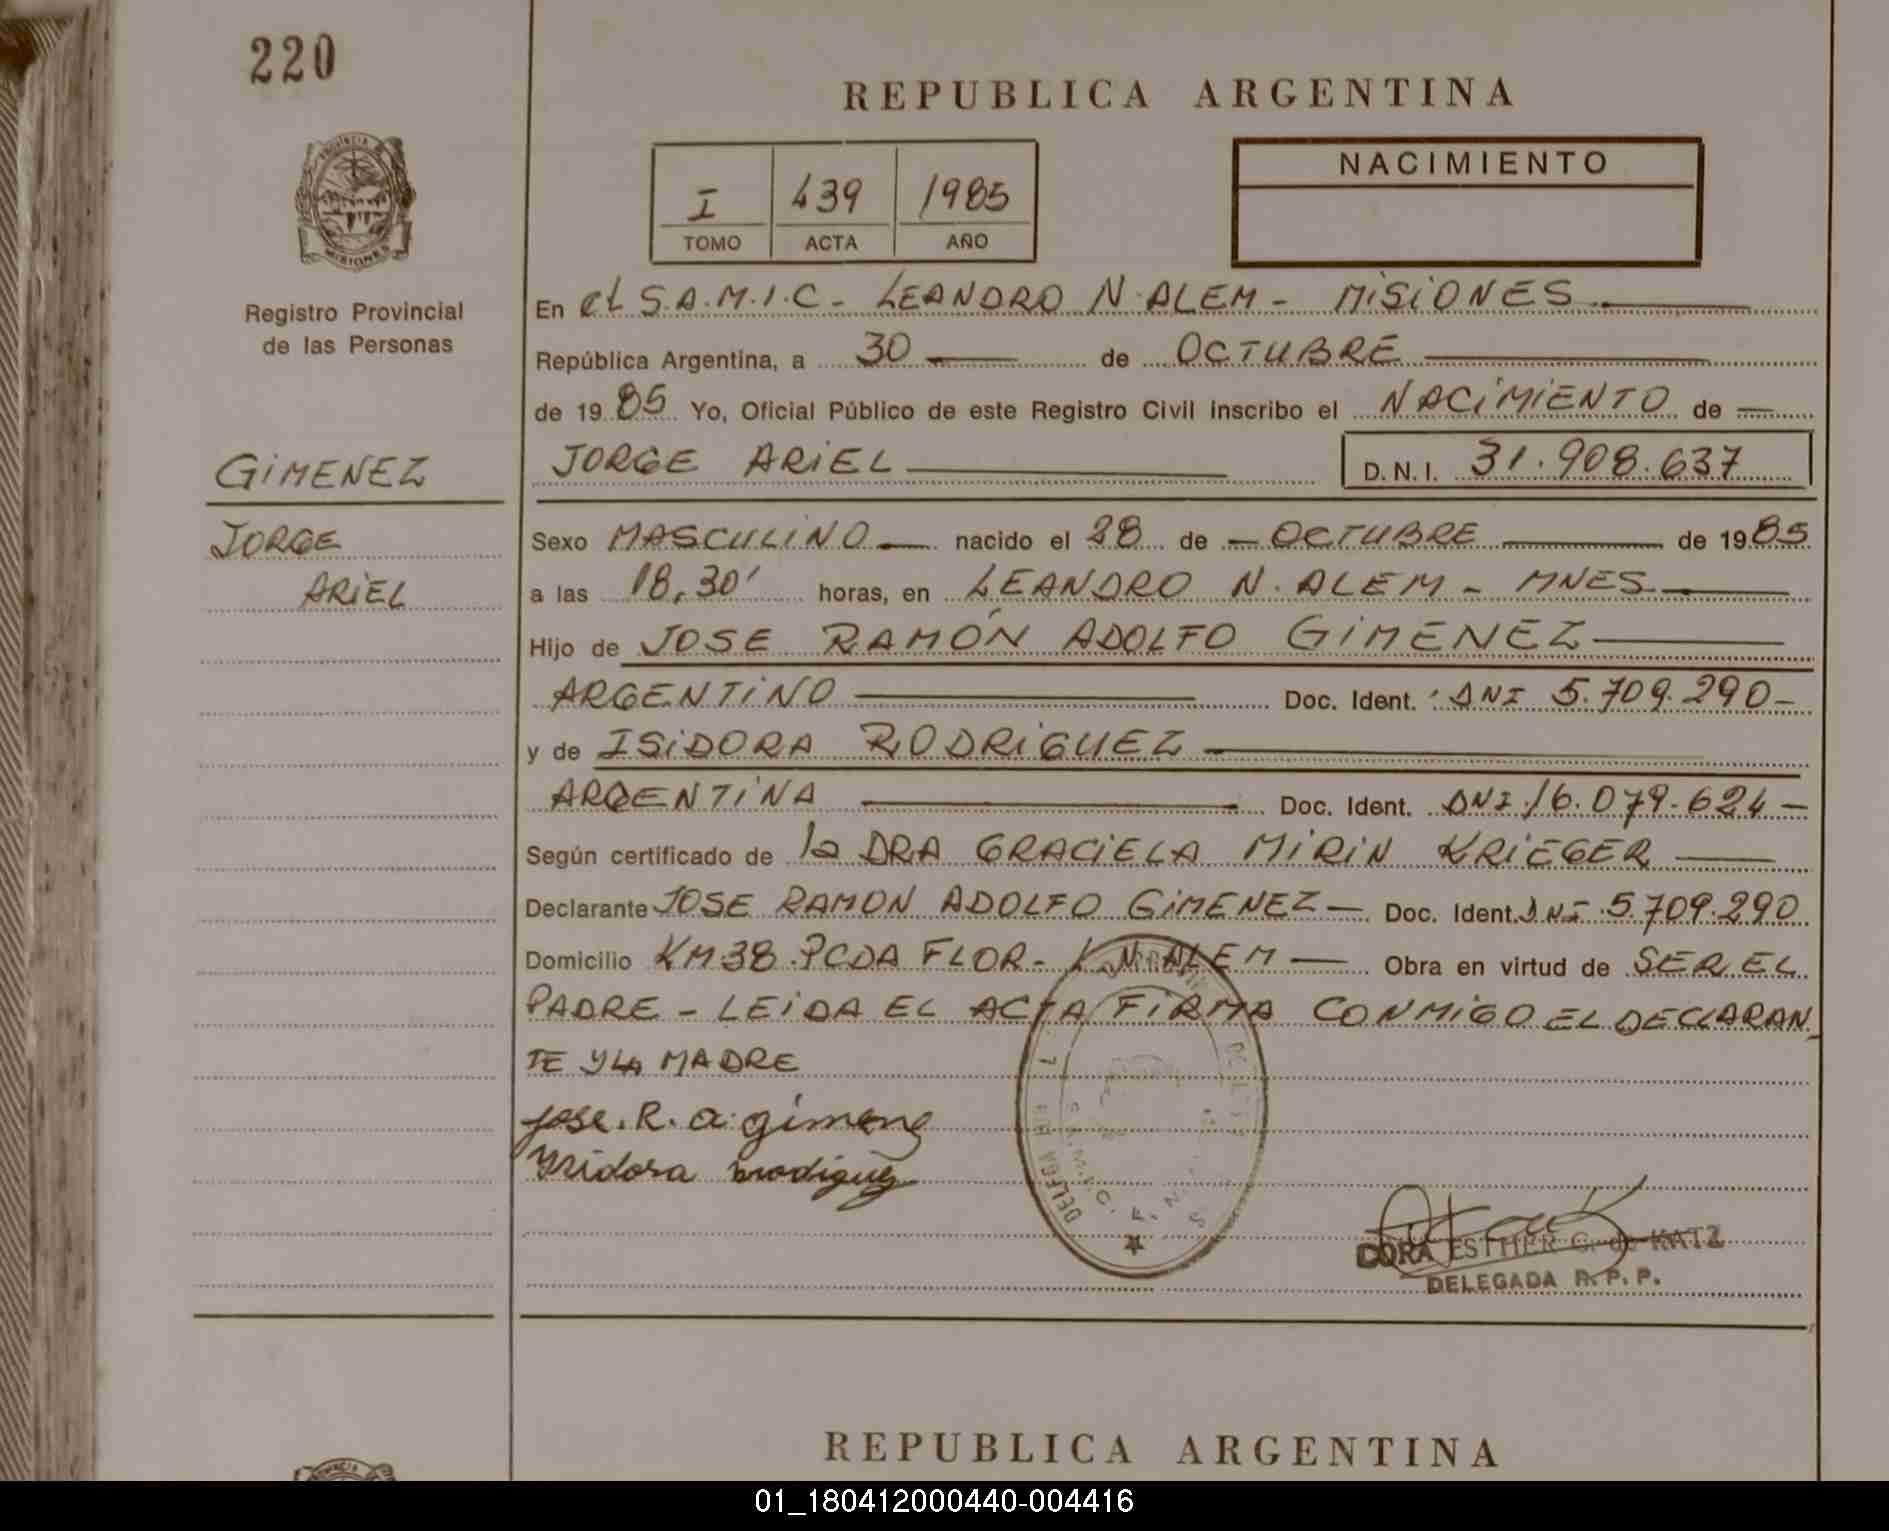 220
REPUBLICA ARGENTINA
PROVINCIA
MISIONES
Registro Provincial
de las Personas
I 439 1985
TOMO ACTA AÑO
NACIMIENTO
En el S.A.M.I.C - LEANDRO N. ALEM - MISIONES
República Argentina, a 30 de OCTUBRE
de 19 85 Yo, Oficial Público de este Registro Civil inscribo el NACIMIENTO de
GIMENEZ
JORGE ARIEL D.N.I. 31.908.637
JORGE
ARIEL
Sexo MASCULINO nacido el 28 de OCTUBRE de 1985
a las 18,30' horas, en LEANDRO N. ALEM - MNES
Hijo de JOSE RAMÓN ADOLFO GIMENEZ
ARGENTINO Doc. Ident. DNI 5.709.290-
y de ISIDORA RODRIGUEZ
ARGENTINA Doc. Ident. DNI 16.079.624-
Según certificado de la DRA GRACIELA MIRIN KRIEGER
Declarante JOSE RAMON ADOLFO GIMENEZ - Doc. Ident. DNI 5.709.290
Domicilio KM 38 PCDA FLOR - L N. ALEM - Obra en virtud de SER EL
PADRE - LEIDA EL ACTA FIRMA CONMIGO EL DECLARAN
TE Y LA MADRE
Jose. R. a. gimenez
Ysidora
DELEGA
S.A.M.I.C. L.N.
CORA ESTHER G. de KATZ
DELEGADA R.P.P.
REPUBLICA ARGENTINA
01_180412000440-004416